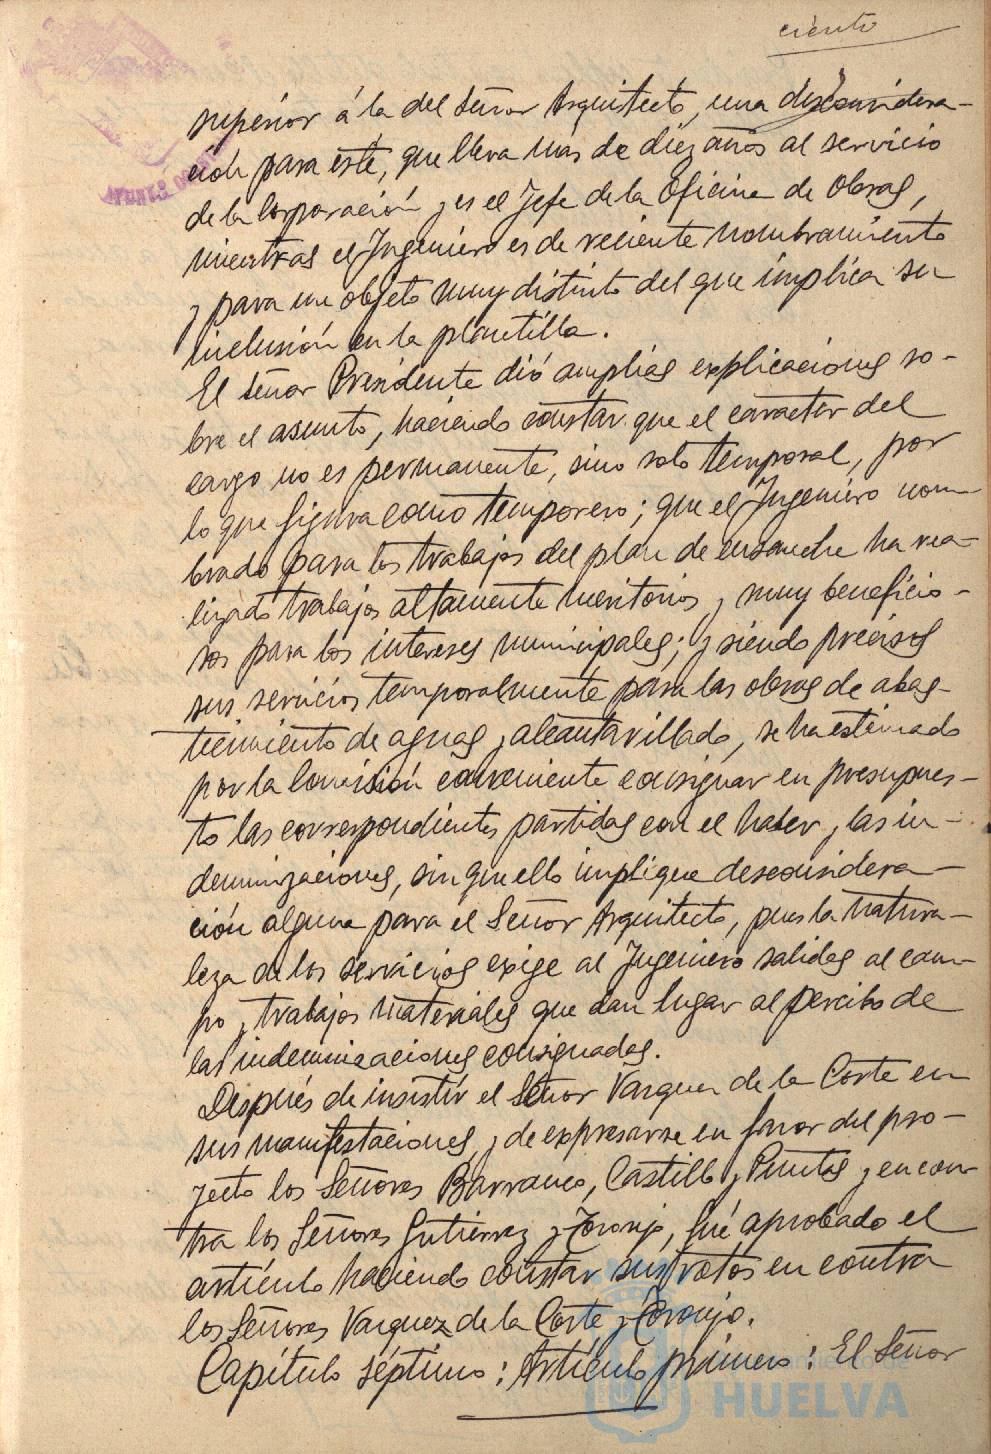 ciento
superior á la del Señor Arquitecto, una desconsidera-
ción para éste, que lleva más de diez años al servicio
de la Corporación y es el Jefe de la Oficina de Obras,
mientras el Ingeniero es de reciente nombramiento
y para un objeto muy distinto del que implica su
inclusión en la plantilla.
El Señor Presidente dió amplias explicaciones so-
bre el asunto, haciendo constar que el caracter del
cargo no es permanente, sino solo temporal, por
lo que figura como temporero; que el Ingeniero nom-
brado para los trabajos del plan de ensanche ha rea-
lizado trabajos altamente meritorios y muy beneficio-
sos para los intereses municipales; y siendo precisos
sus servicios temporalmente para las obras de abas-
tecimiento de aguas y alcantarillado, se ha estimado
por la Comisión conveniente consignar en presupues-
to las correspondientes partidas con el haber y las in-
demnizaciones, sin que ello implique desconsidera-
ción alguna para el Señor Arquitecto, pues la natura-
leza de los servicios exige al Ingeniero salidas al cam-
po y trabajos materiales que dan lugar al percibo de
las indemnizaciones consignadas.
Después de insistir el Señor Vazquez de la Corte en
sus manifestaciones y de expresarse en favor del pro-
yecto los Señores Barranco, Castillo y Puntas y en con-
tra los Señores Gutiérrez y Toronjo, fué aprobado el
artículo haciendo constar sus votos en contra
los Señores Vazquez de la Corte y Toronjo.
Capítulo séptimo: Artículo primero: El Señor
HUELVA